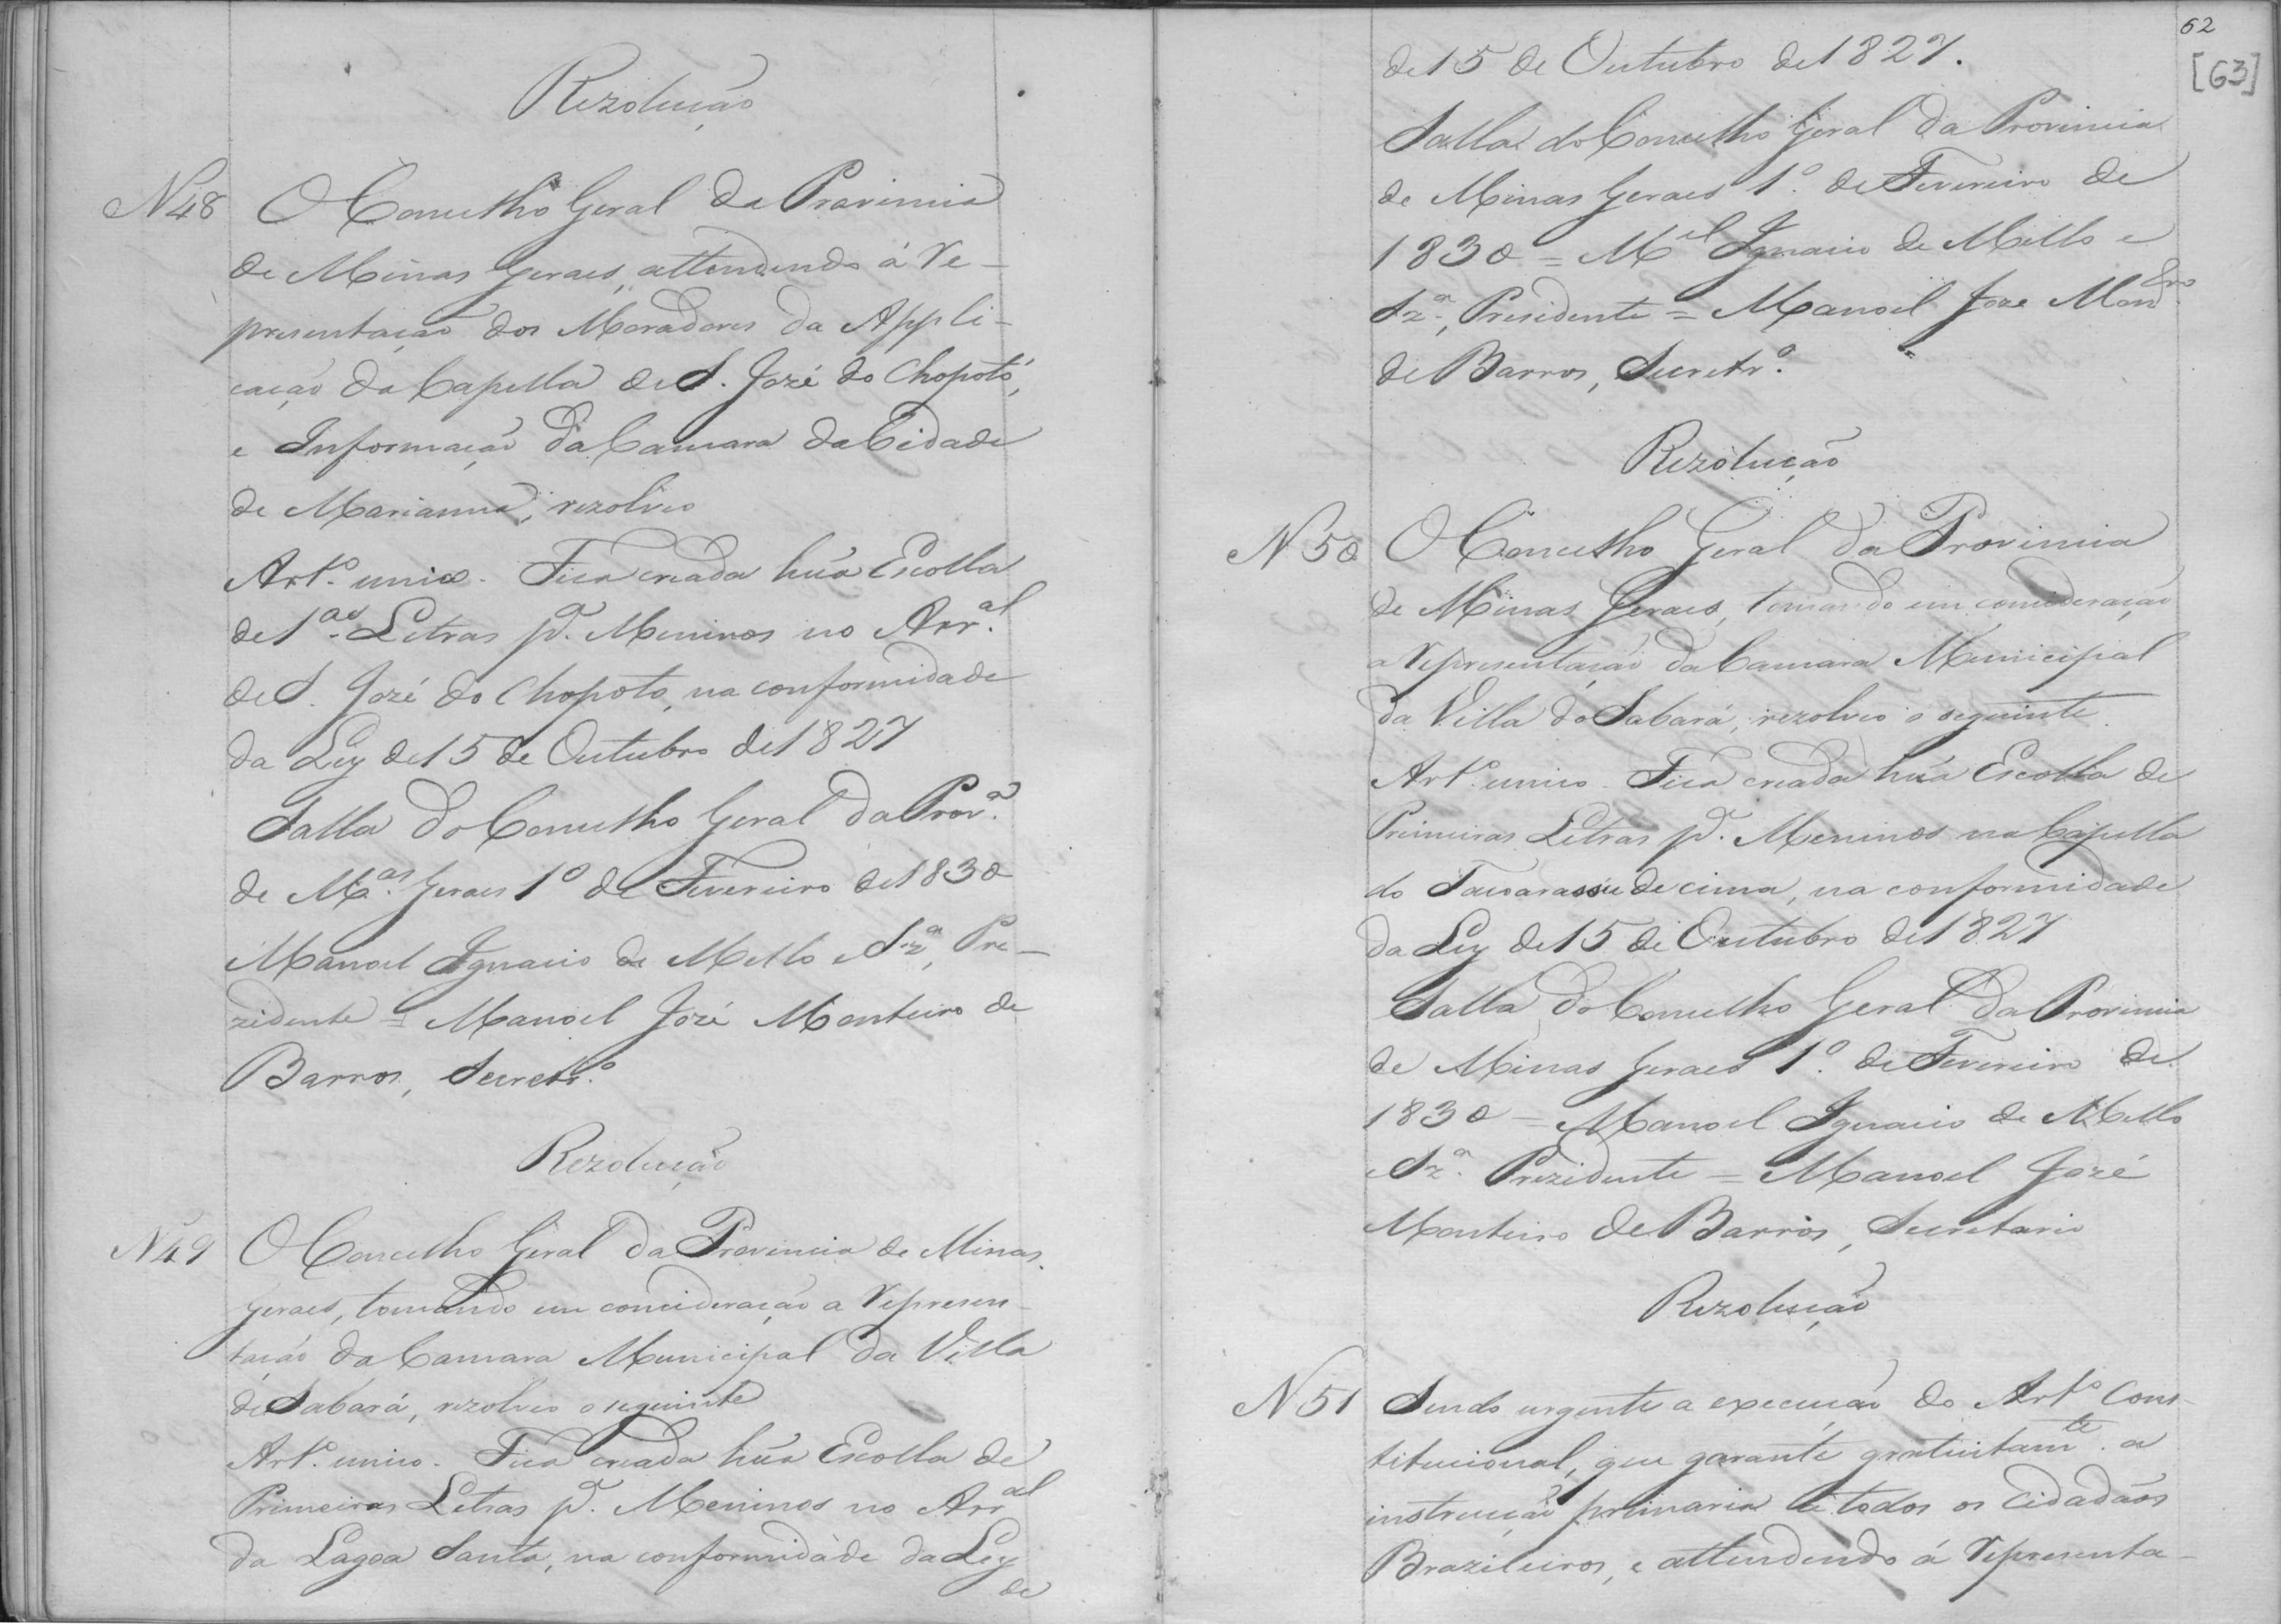 Rezolução
N 48 O Concelho Geral da Provincia
de Minas Geraes, attendendo á Re-
presentação dos Moradores da Appli-
cação da Capella de S. José do Chopotó,
e Informação da Camara da Cidade
de Marianna, rezolveo
Art.º unico. Fica creada hũa Escolla
de 1.as Letras p.ª Meninos no Arr.al
de S. José do Chopoto, na conformidade
da Ley de 15 de Outubro de 1827
Salla do Concelho Geral da Prov.ª
de M.as Geraes 1º de Fevereiro de 1830
Manoel Ignacio de Mello e Sz.ª, Pre-
zidente = Manoel José Monteiro de
Barros, Secretr.º
Rezolução
N 49 O Concelho Geral da Provincia de Minas
Geraes, tomando em concideração a Represen-
tação da Camara Municipal da Villa
de Sabará, rezolveo o seguinte
Art.º unico. Fica creada hũa Escolla de
Primeiras Letras p.ª Meninos no Arr.al
da Lagoa Santa, na conformidade da Ley
de
62
[63]
de 15 de Outubro de 1827.
Salla do Concelho Geral da Provincia
de Minas Geraes 1.º de Fevereiro de
1830 = M.el Ignacio de Mello e
Sz.ª, Presidente = Manoel Joze Mont.ro
de Barros, Secretr.º
Rezolução
N 50 O Concelho Geral da Provincia
de Minas Geraes, tomando em concideração
a Representação da Camara Municipal
da Villa do Sabará, rezolveo o seguinte.
Art.º unico. Fica creada hũa Escolla de
Primeiras Letras p.ª Meninos na Capella
do de cima, na conformidade
da Ley de 15 de Outubro de 1827
Salla do Concelho Geral da Provincia
de Minas Geraes 1.º de Fevereiro de
1830 = Manoel Ignacio de Mello
e Sz.ª Prezidente = Manoel José
Monteiro de Barros, Secretario
Rezolução
N 51 Sendo urgente a execução do Art.º Cons-
titucional, que garante gratuitam.te a
instrucção primaria a todos os Cidadãos
Brazileiros, e attendendo á Representa-